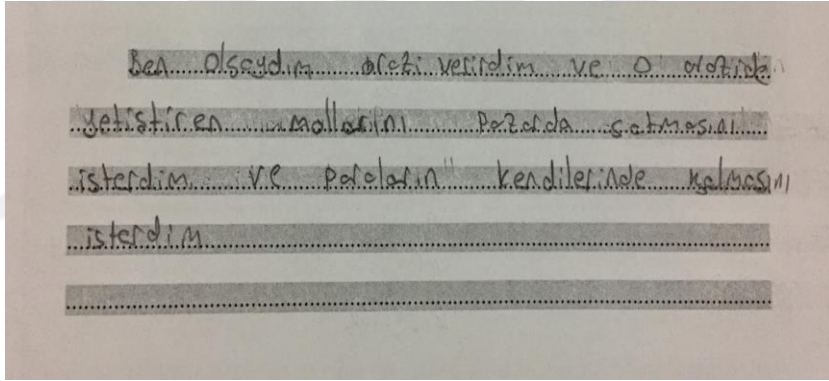 Ben olsaydım arazi verirdim ve o arazide
yetistiren mallarını pazarda satmasını
isterdim ve paraların kendilerinde kalmasını
isterdim